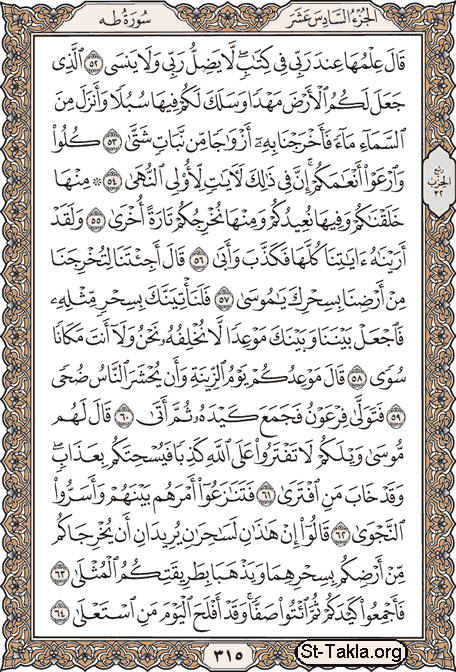 الجزء السادس عشر
سورة طه
قَالَ عِلْمُهَا عِندَ رَبِّى فِى كِتَٰبٍۖ لَّا يَضِلُّ رَبِّى وَلَا يَنسَى ٥٢ ٱلَّذِى
جَعَلَ لَكُمُ ٱلْأَرْضَ مَهْدًا وَسَلَكَ لَكُمْ فِيهَا سُبُلًا وَأَنزَلَ مِنَ
ٱلسَّمَآءِ مَآءً فَأَخْرَجْنَا بِهِۦٓ أَزْوَٰجًا مِّن نَّبَاتٍ شَتَّىٰ ٥٣ كُلُوا۟
وَٱرْعَوْا۟ أَنْعَٰمَكُمْۗ إِنَّ فِى ذَٰلِكَ لَءَايَٰتٍ لِّأُو۟لِى ٱلنُّهَىٰ ٥٤ ۞ مِنْهَا
ربع الحزب ٣٢
خَلَقْنَٰكُمْ وَفِيهَا نُعِيدُكُمْ وَمِنْهَا نُخْرِجُكُمْ تَارَةً أُخْرَىٰ ٥٥ وَلَقَدْ
أَرَيْنَٰهُ ءَايَٰتِنَا كُلَّهَا فَكَذَّبَ وَأَبَىٰ ٥٦ قَالَ أَجِئْتَنَا لِتُخْرِجَنَا
مِنْ أَرْضِنَا بِسِحْرِكَ يَٰمُوسَىٰ ٥٧ فَلَنَأْتِيَنَّكَ بِسِحْرٍ مِّثْلِهِۦ
فَٱجْعَلْ بَيْنَنَا وَبَيْنَكَ مَوْعِدًا لَّا نُخْلِفُهُۥ نَحْنُ وَلَآ أَنتَ مَكَانًا
سُوًى ٥٨ قَالَ مَوْعِدُكُمْ يَوْمُ ٱلزِّينَةِ وَأَن يُحْشَرَ ٱلنَّاسُ ضُحًى
٥٩ فَتَوَلَّىٰ فِرْعَوْنُ فَجَمَعَ كَيْدَهُۥ ثُمَّ أَتَىٰ ٦٠ قَالَ لَهُم
مُّوسَىٰ وَيْلَكُمْ لَا تَفْتَرُوا۟ عَلَى ٱللَّهِ كَذِبًا فَيُسْحِتَكُم بِعَذَابٍۖ
وَقَدْ خَابَ مَنِ ٱفْتَرَىٰ ٦١ فَتَنَٰزَعُوٓا۟ أَمْرَهُم بَيْنَهُمْ وَأَسَرُّوا۟
ٱلنَّجْوَىٰ ٦٢ قَالُوٓا۟ إِنْ هَٰذَٰنِ لَسَٰحِرَٰنِ يُرِيدَانِ أَن يُخْرِجَاكُم
مِّنْ أَرْضِكُم بِسِحْرِهِمَا وَيَذْهَبَا بِطَرِيقَتِكُمُ ٱلْمُثْلَىٰ ٦٣
فَأَجْمِعُوا۟ كَيْدَكُمْ ثُمَّ ٱئْتُوا۟ صَفًّاۚ وَقَدْ أَفْلَحَ ٱلْيَوْمَ مَنِ ٱسْتَعْلَىٰ ٦٤
٣١٥
St-Takla.org